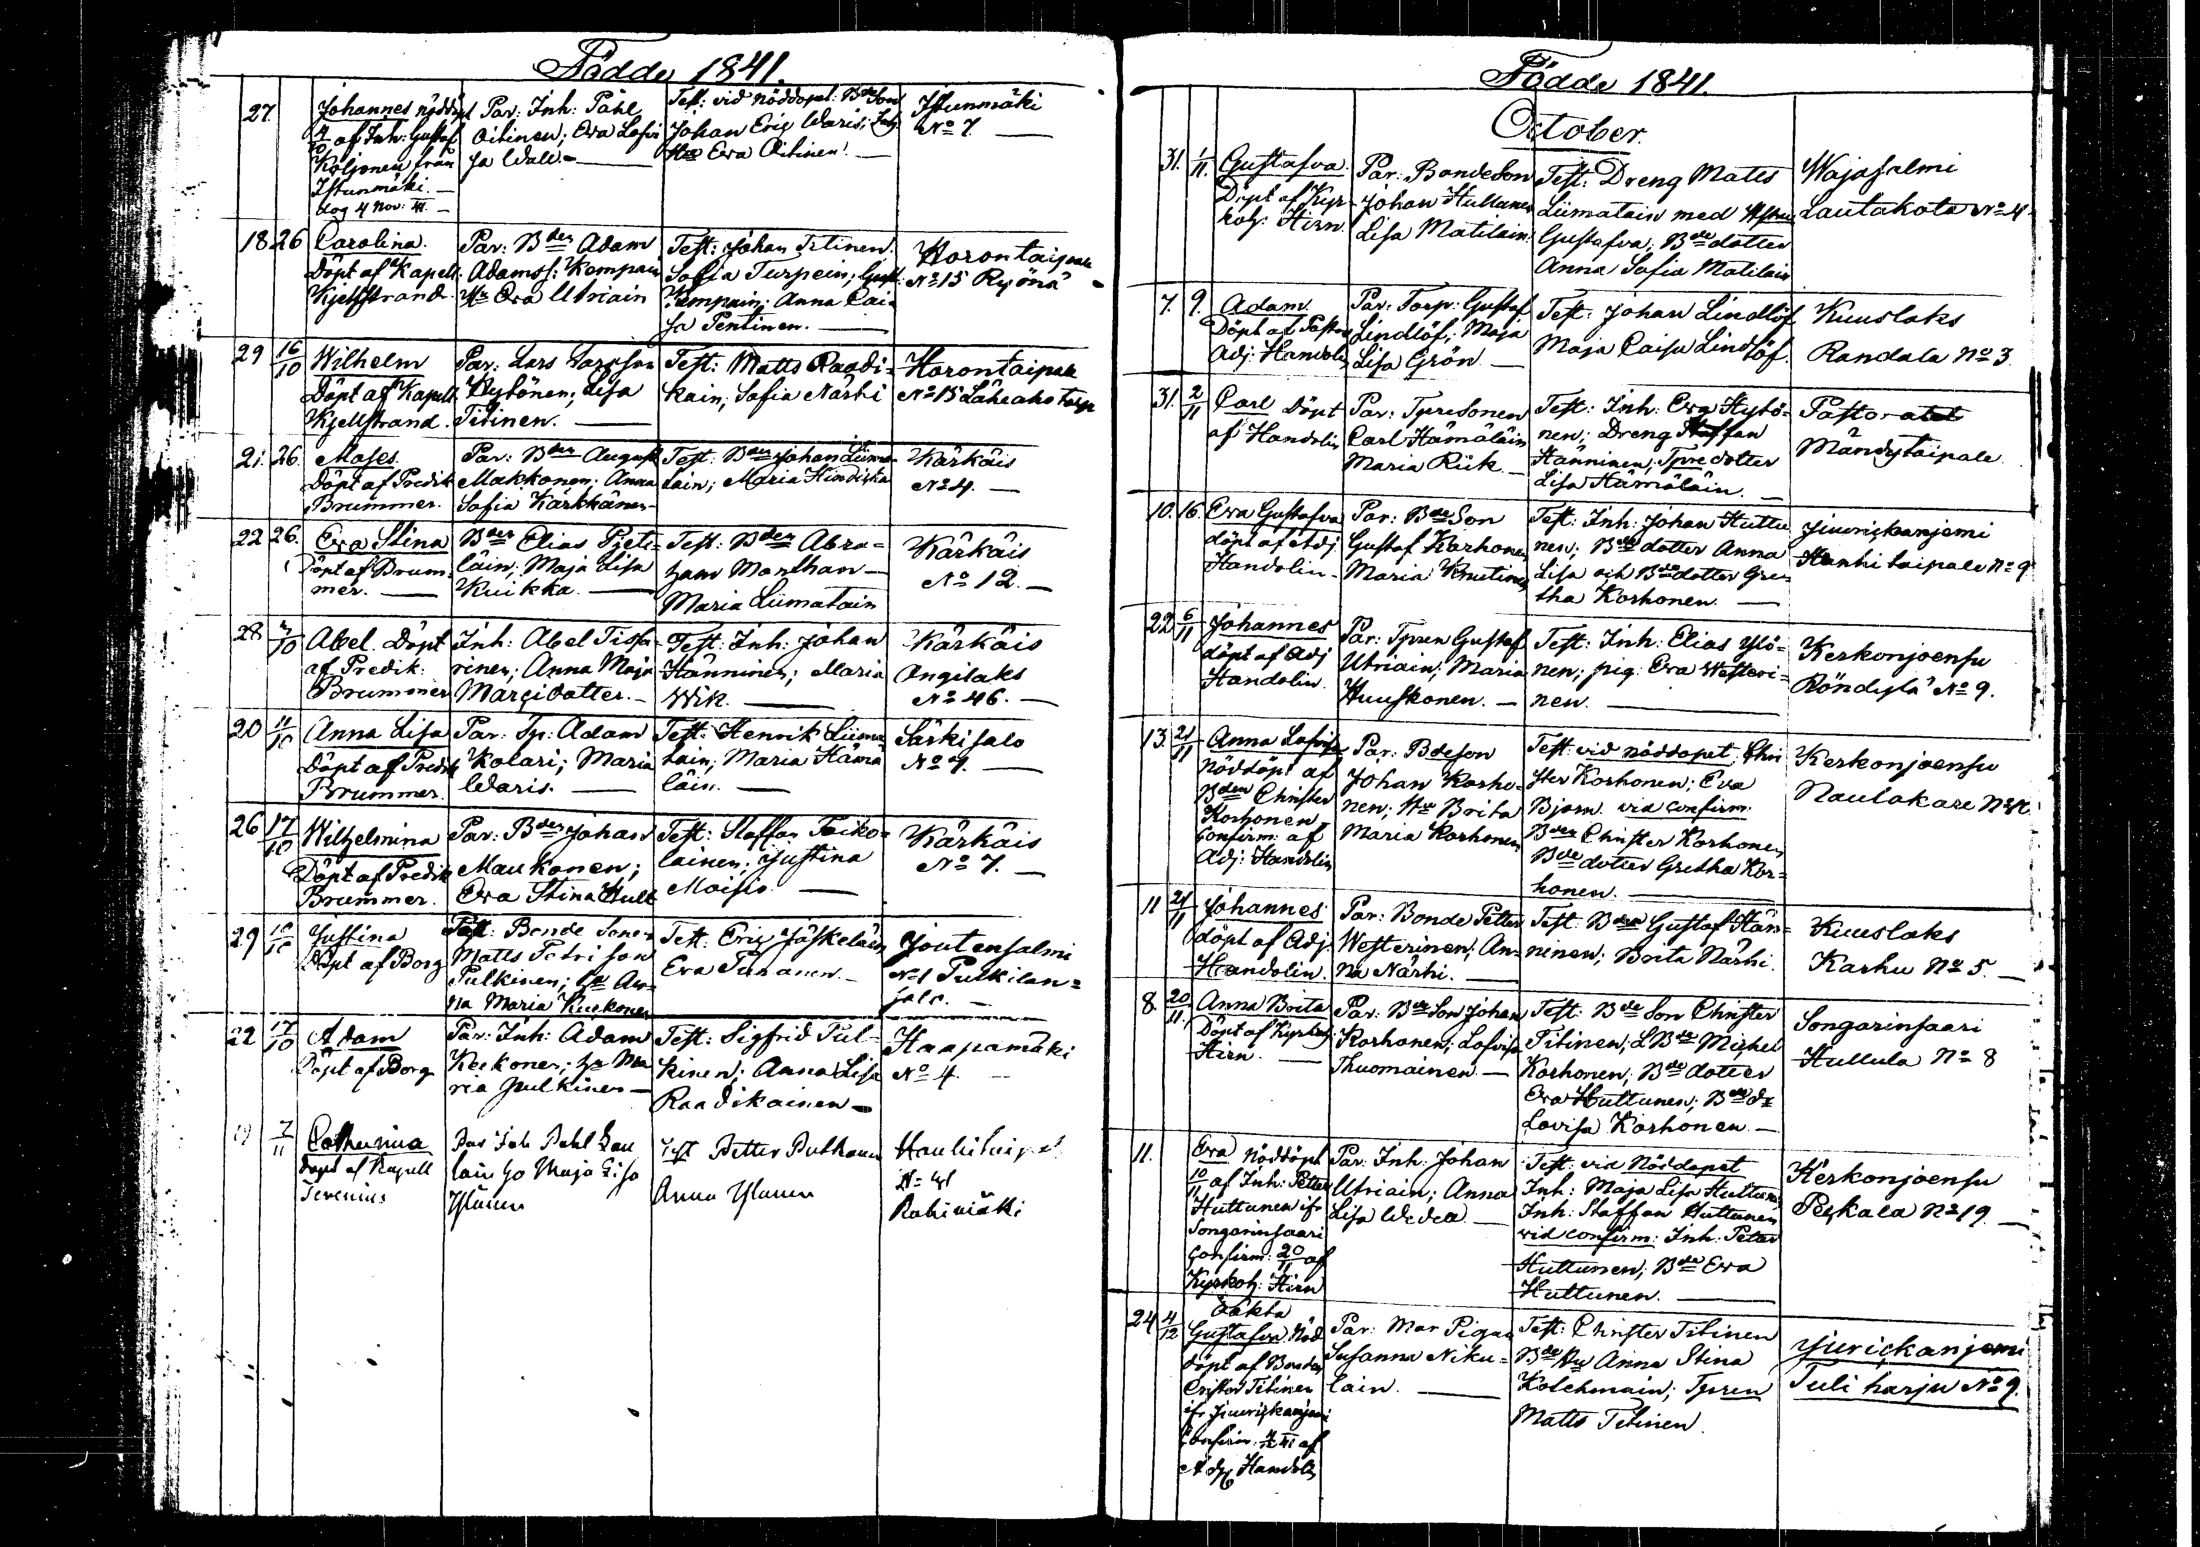 Födde 1841.
27
Johannes nöddöpt
4/10 af Inh: Gustaf
Koljonen från
Istunmäki. —
dog 4 Nov: 41. —
Par: Inh: Påhl
Oitinen; Eva Lovi
sa Wall. —
Test: vid nöddopet: Bde Son
Johan Eric Waris; Inh:
Hu Eva Oitinen. —
Istunmäki
No 7. —
18 26
Carolina.
Döpt af Kapell:
Kjellstrand.
Par: Bden Adam
Adamss: Kompain
Hu Eva Utriain
Test: Johan Titinen
Sofia Turpein; Gust:
Kempain: Anna Cai=
sa Pentinen. —
Korontaipale
No 15 Ryönä
29 16/10
Wilhelm
Döpt af Kapell
Kjellstrand.
Par: Lars Larsson
Kytönen; Lisa
Titinen. —
Test: Matts Raadi=
kain; Sofia Närhi
Horontaipale
No 15 Läheaho torp
21. 26.
Moses.
Döpt af Predik
Brummer.
Par: Bden August
Makkonen; Anna
Sofia Kärkkänen
Test: Bden Johan Liima=
tain; Maria Hindiska
Kärkäis
No 4. —
22 26.
Eva Stina
Döpt af Brum=
mer. —
Bden Elias Pieti=
läin; Maja Lisa
Kuikka. —
Test: Bden Abra=
ham Manthan —
Maria Liimatain
Kärkäis
No 12. —
28
Abel. Döpt
af Predik:
Brummer
Inh: Abel Tissa=
rinen; Anna Maja
Marcidotter. —
Test: Inh: Johan
Hänninen; Maria
Wik. —
Kärkäis
Ongilaks
No 46. —
20 11/10
Anna Lisa
Döpt af Predik
Brummer.
Par: Tp: Adam
Kolari; Maria
Waris. —
Test: Henrik Liima
tain; Maria Häma
läin. —
Särkisalo
No 7. —
26 17/10
Wilhelmina
Döpt af Predik
Brummer.
Par: Bden Johan
Maukonen;
Eva Stina Hult
Test: Staffan Toiko=
lainen. Justina
Moisio. —
Kärkäis
No 7. —
29
Justina
Döpt af Borg
Bonde Sonen
Matts Petri son
Pulkinen; hu An=
na Maria Kuikonen
Test: Eric Jäskeläin
Eva Pananen. —
Joutensalmi
No 1 Pulkilan=
salo. —
22 17/10
Adam
Döpt af Borg
Par: Inh: Adam
Keckonen; hu Ma
ria Pulkinen —
Test: Sigfrid Pul=
kinen; Anna Lisa
Raadikainen —
Haapamäki
No 4. —
19 7/11
Catharina
Döpt af Kapell
Par Inh Pahl
lain Maja Lisa
Ylönen
Test Petter Puthanen
Anna Ylönen
Rahimäki
Födde 1841.
October.
31. 1/11.
Gustafva.
Döpt af Kyr=
koh: Hirn.
Par: Bondeson
Johan Huttunen
Lisa Matilain.
Test: Dreng Matts
Liimatain med Hustru
Gustafva; Bde dotter
Anna Sofia Matilain
Wajasalmi
Lautakota No 4
7. 9.
Adam.
Döpt af Pastors
Adj: Handolin
Par: Torp: Gustaf
Lindlöf; Maja
Lisa Grön —
Test: Johan Lindlöf
Maja Caisa Lindlöf.
Kuuslaks
Randala No 3.
31. 2/11
Carl Döpt
af Handolin
Par: Tpresonen
Carl Hämäläin
Maria Riik. —
Test: Inh: Eva Hytö=
nen; Dreng Staffan
Hänninen; Tpredotter
Lisa Hämäläin. —
Pastoratet
Mändytaipale.
10. 16.
Eva Gustafva
döpt af Adj
Handolin.
Par: Bde Son
Gustaf Korhonen
Maria Knutinen
Test: Inh: Johan Huttu
nen; Bde dotter Anna
Lisa och Bde dotter Gre=
tha Korhonen. —
Jiurickanjemi
Hanhitaipale No 9
22 6/11
Johannes
döpt af Adj
Handolin.
Par: Tpren Gustaf
Utriain; Maria
Huuskonen. —
Test: Inh: Elias Ylö=
nen; pig. Eva Westeri=
nen. —
Kerkonjoensu
Röndylä No 9.
13. 21/11
Anna Lovisa
Nöddöpt af
Bden Christer
Korhonen
Confirm: af
Adj: Handolin
Par: Bdeson
Johan Korho=
nen; Hu Brita
Maria Korhonen
Test: vid nöddopet, Chri
ster Korhonen; Eva
Bjorn. vid confirm:
Bden Christer Korhonen
Bde dotter Gretha Kor=
honen. —
Kerkonjoensu
Naulakare
11 21/11
Johannes
döpt af Adj:
Handolin.
Par: Bonde Petter
Westerinen; An=
na Närhi. —
Test: Bden Gustaf Hän=
ninen; Brita Närhi.
Kuuslaks
Karhu No 5. —
8. 20/11
Anna Brita
Döpt af Kyrkoh:
Hirn. —
Par: Bde Son Johan
Korhonen; Lovisa
Thuomainen —
Test: Bde Son Christer
Titinen; L Bde Michel
Korhonen; Bde dotter
Eva Huttunen; Bde dr
Lovisa Korhonen —
Songarinsaari
Hullula No 8
11.
Eva Nöddöpt
10/11 af Inh: Petter
Huttunen ifr
Songarinsaari
Confirm: 20/11 af
Kyrkoh: Hirn
Par: Inh: Johan
Utriain; Anna
Lisa Wedea —
Test: vid Nöddopet
Inh: Maja Lisa Huttunen
Inh: Staffan Huttunen
vid confirm: Inh: Petter
Huttunen; Bde Eva
Huttunen. —
Kerkonjoensu
Peckala No 19. —
24 4/12
Oäkta
Gustafva Nöd
döpt af Bonden
Crister Titinen
ifr Jiurickanjemi
Confirm: af
Adj Handolin
Par: Mor Pigan
Susanna Niku=
lain. —
Test: Christer Titinen
Bde Hu Anna Stina
Kolehmain; Tpren
Matts Titinen.
Jiurickanjemi
Tuliharju No 9.